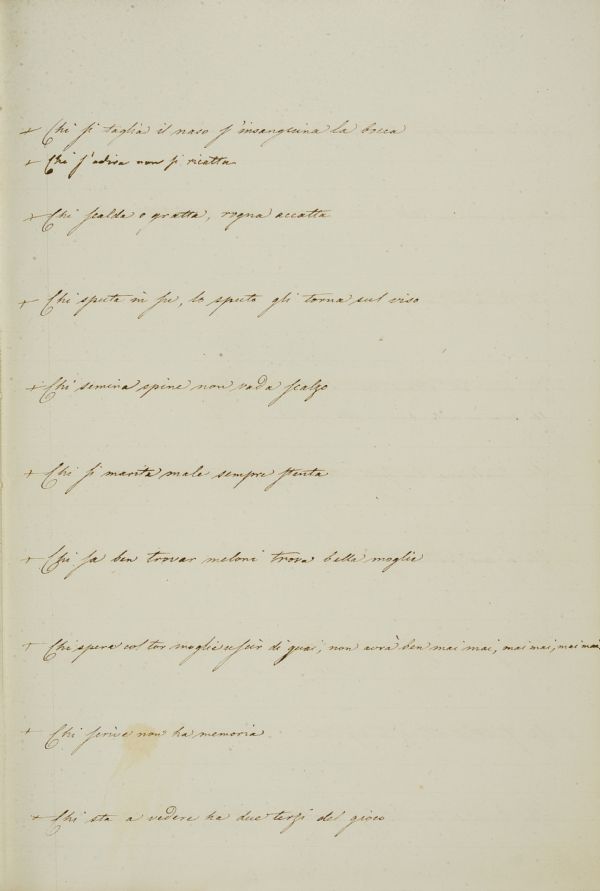 + Chi si taglia il naso s'insanguina la bocca
+ Chi s'adira non si ricatta
+ Chi scalda o gratta, rogna accatta
+ Chi sputa in su, lo sputo gli torna sul viso
+ Chi semina spine non vada scalzo
+ Chi si marita male sempre stenta
+ Chi sa ben trovar meloni trova bella moglie
+ Chi spera col tor moglie uscir di guai, non avrà ben mai mai, mai mai, mai mai
+ Chi scrive non ha memoria
+ Chi sta a vedere ha due terzi del gioco